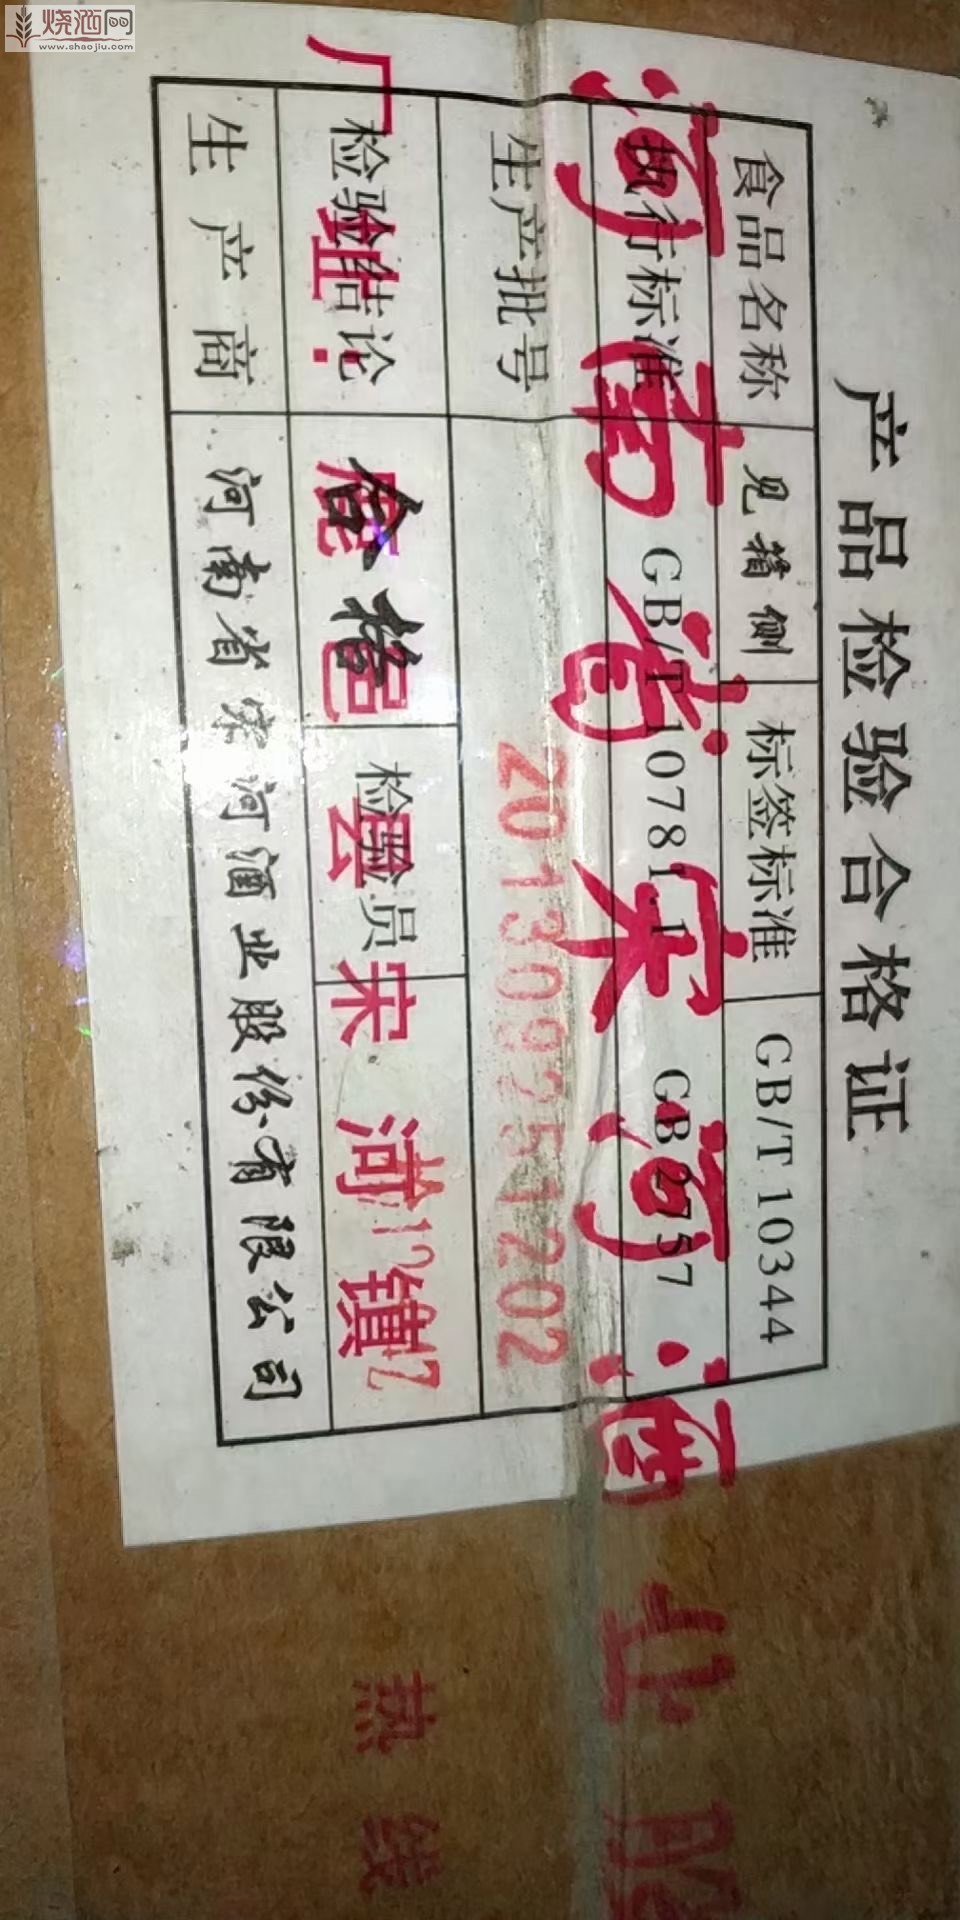 烧酒网
www.shaojiu.com
产品检验合格证
食品名称 见箱侧 标签标准 GB/T10344
执行标准 GB/T10781.1 GB2757
生产批号 201308251202
检验结论 合格 检验员
生产商 河南省宋河酒业股份有限公司
河南省宋河酒业股
厂址: 鹿邑县宋河镇
热线